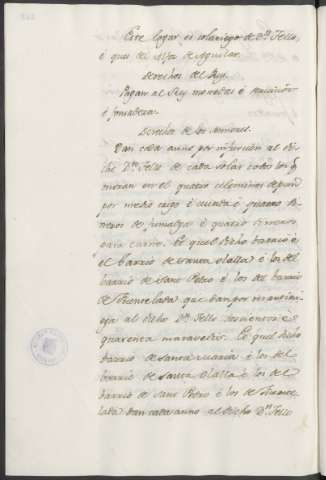 Este logar es solariego de Dn. Tello,
é que de Alfa de Aguilar.
Derechos del Rey.
Pagan al Rey monedas é servicios
é fonsadera.
Derechos de los Señores.
Dan cada anno por infurcion al di-
cho Dn. Tello de cada solar todos los q.
moran en el quatro celemines de pan
por medio é quatro di-
neros de fumalga é quatro dineros
para carne. Et quel dicho barrio é
el barrio de Santa Olalla é los del
barrio de Sant Pedro é los del barrio
de que dan por martinie-
ga al dicho Dn. Tello doscientos é
quarenta maravedis. Et quel dicho
barrio de Santa Maria é los del
barrio de Santa Olalla é los del
barrio de Sant Pedro é los de
dan cada anno al dicho Dn. Tello